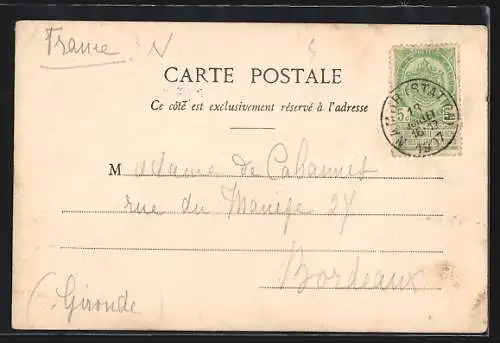 France
CARTE POSTALE
Ce côté est exclusivement réservé à l'adresse
Madame de Cabannes
rue du Manège 27
Bordeaux
(Gironde)
NAMUR (STATION)
JUILLET
1907